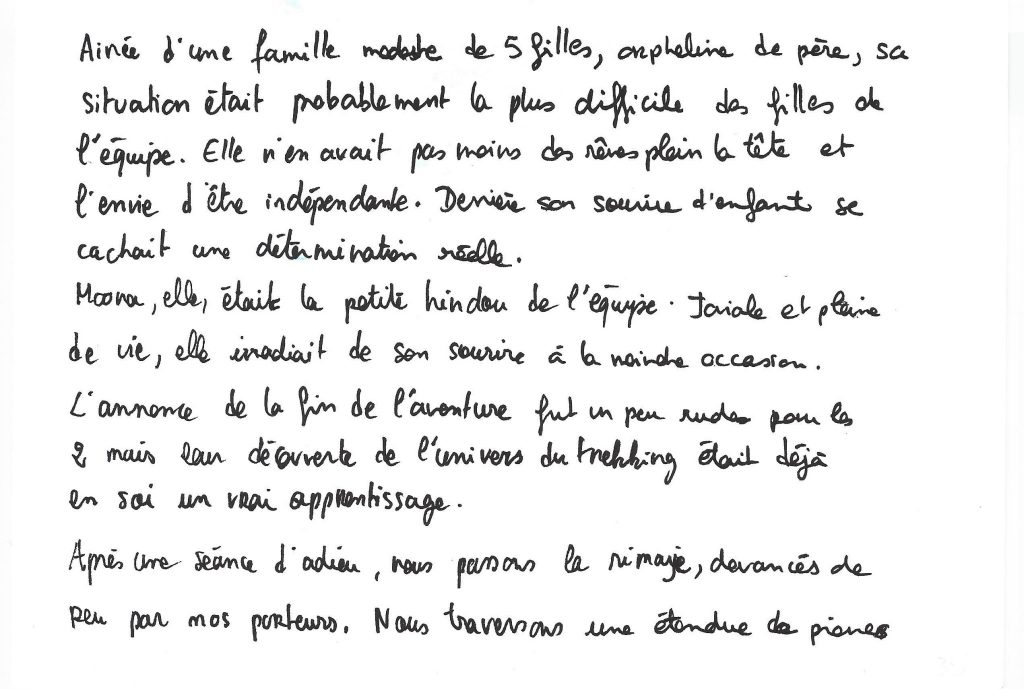 Ainée d'une famille modeste de 5 filles, orpheline de père, sa
situation était probablement la plus difficile des filles de
l'équipe. Elle n'en avait pas moins des rêves plein la tête et
l'envie d'être indépendante. Derrière son sourire d'enfant se
cachait une détermination réelle.
Moona, elle, était la petite hindou de l'équipe. Joviale et pleine
de vie, elle irradiait de son sourire à la moindre occasion.
L'annonce de la fin de l'aventure fut un peu rude pour les
2 mais leur découverte de l'univers du trekking était déjà
en soi un vrai apprentissage.
Après une séance d'adieu, nous passons la rimaye, devancés de
peu par nos porteurs. Nous traversons une étendue de pierres